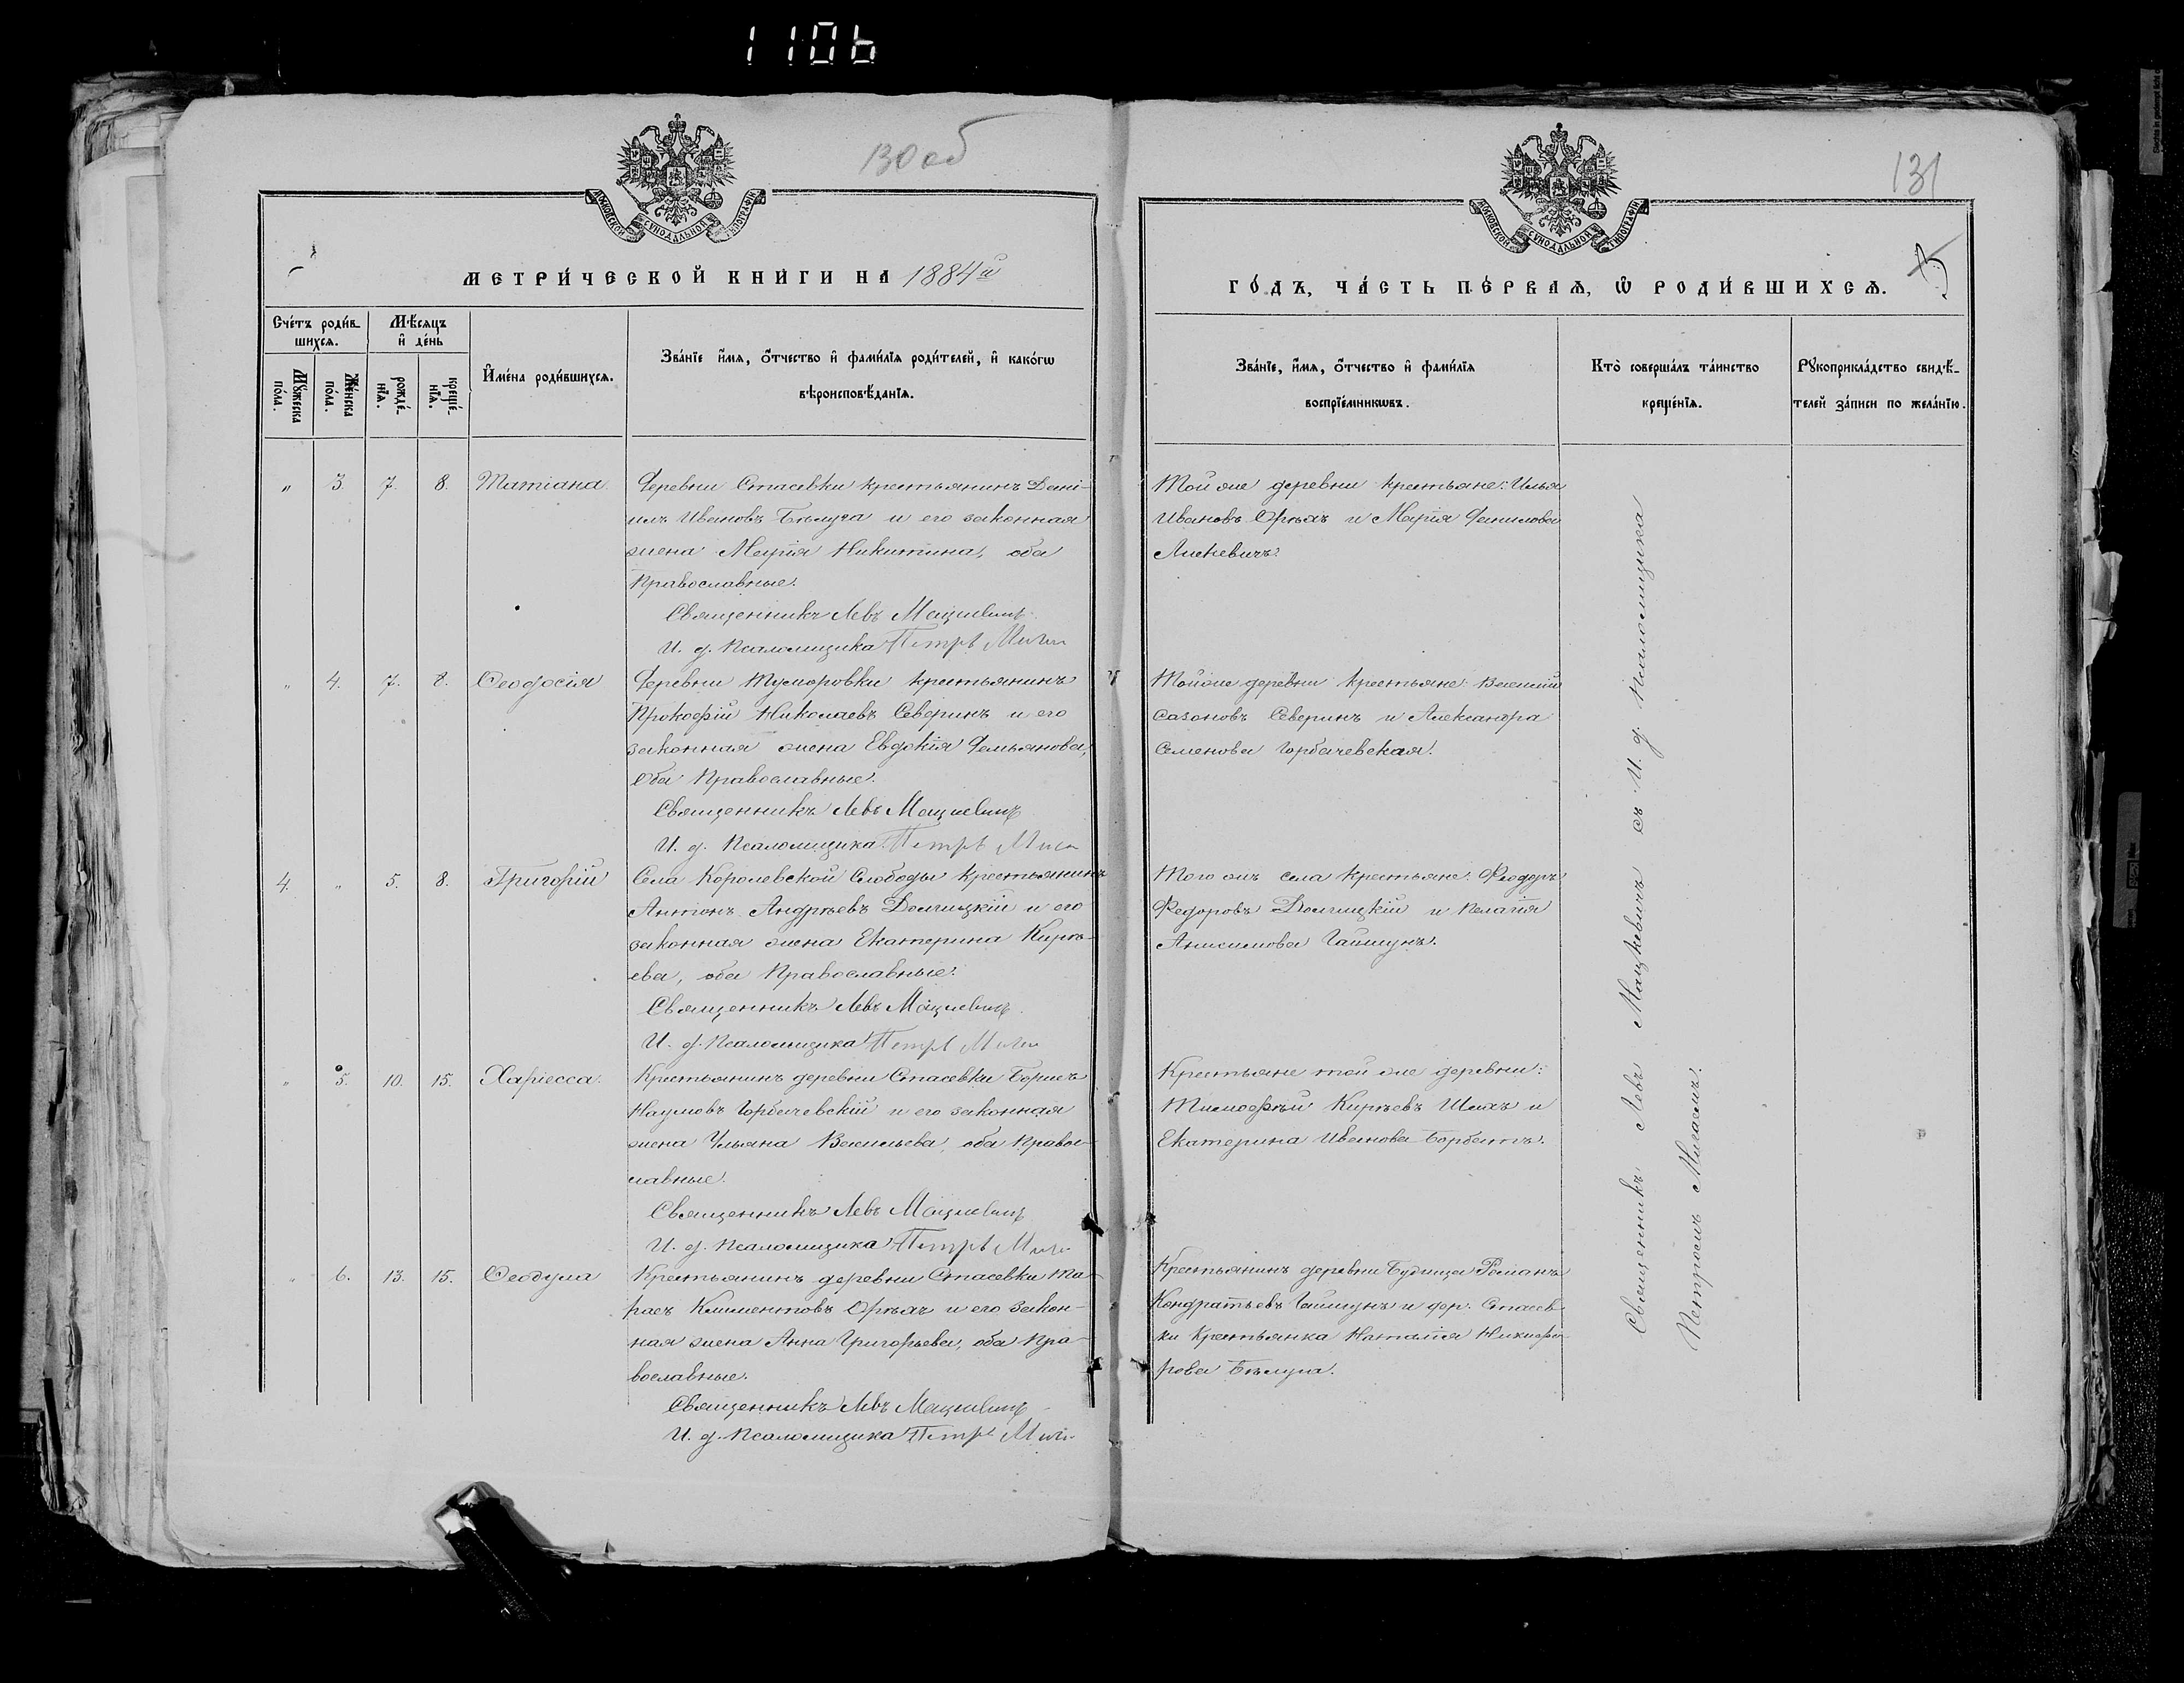 1106
130 об
МОСКОВСКОЙ СѴНОДАЛЬНОЙ ТИПОГРАФІИ
МЕТРИ́ЧЕСКОЙ КНИ́ГИ НА 1884 й
Сче́тъ роди́в-
шихся.
Мѣ́сяцъ
и҆ де́нь
Мꙋ́жеска
по́ла.
Же́нска
по́ла.
рожде́-
нїѧ.
креще́-
нїѧ.
И҆мена̀ роди́вшихсѧ.
Зва́нїе и҆́мѧ, ѻ҆́тчество и҆ фами́лїѧ роди́телей, и҆ како́гѡ
вѣроисповѣ́данїѧ.
„ 3. 7. 8. Татіана. Деревни Стасевки крестьянинъ Дані-
илъ Ивановъ Бѣлуга и его законная
жена Марія Никитина, оба
Православные.
Священникъ Левъ Мацкевичъ
И. д. Псаломщика Петръ
„ 4. 7. 8. Ѳеодосія Деревни Тумаровки крестьянинъ
Прокофій Николаевъ Северинъ и его
законная жена Евдокія Демьянова,
оба Православные.
Священникъ Левъ Мацкевичъ
И. д. Псаломщика Петръ
4. „ 5. 8. Григорій Села Королевской Слободы крестьянинъ
Антонъ Андреевъ Долгицкій и его
законная жена Екатерина Кирѣ-
ева, оба Православные.
Священникъ Левъ Мацкевичъ
И. д. Псаломщика Петръ
„ 5. 10. 15. Харіесса. Крестьянинъ деревни Стасевки Борисъ
Наумовъ Горбачевскій и его законная
жена Ульяна Васильева, оба Правос-
лавные.
Священникъ Левъ Мацкевичъ
И. д. Псаломщика Петръ
„ 6. 13. 15. Ѳеодула Крестьянинъ деревни Стасевки Та-
расъ Климентовъ Орѣхъ и его закон-
ная жена Анна Григорьева, оба Пра-
вославные.
Священникъ Левъ Мацкевичъ
И. д. Псаломщика Петръ
131
МОСКОВСКОЙ СѴНОДАЛЬНОЙ ТИПОГРАФІИ
ГО́ДЪ, ЧА́СТЬ ПЕ́РВАѦ, Ѡ҆ РОДИ́ВШИХСѦ.
Зва́нїе, и҆́мѧ, ѻ҆́тчество и҆ фами́лїѧ
воспрїе́мникѡвъ.
Кто̀ соверша́лъ та́инство
креще́нїѧ.
Рꙋкоприкла́дство свидѣ́-
телей за́писи по жела́нїю.
Той же деревни крестьяне: Илья
Ивановъ Орѣхъ и Марія Данилова
Той же деревни крестьяне: Василій
Сазоновъ Северинъ и Александра
Семенова Горбачевская.
Того жъ села крестьяне: Ѳеодоръ
Федоровъ Долгицкій и Пелагія
Анисимова Гайшунъ.
Крестьяне той же деревни:
Тимофѣй Кирѣевъ и
Екатерина Иванова
Крестьянинъ деревни Будища Романъ
Кондратьевъ Гайшунъ и дер. Стасев-
ки Крестьянка Наталія Никифо-
рова Бѣлуга.
Священникъ Левъ Мацкевичъ съ И. д. Псаломщика
Петромъ Мигаемъ.